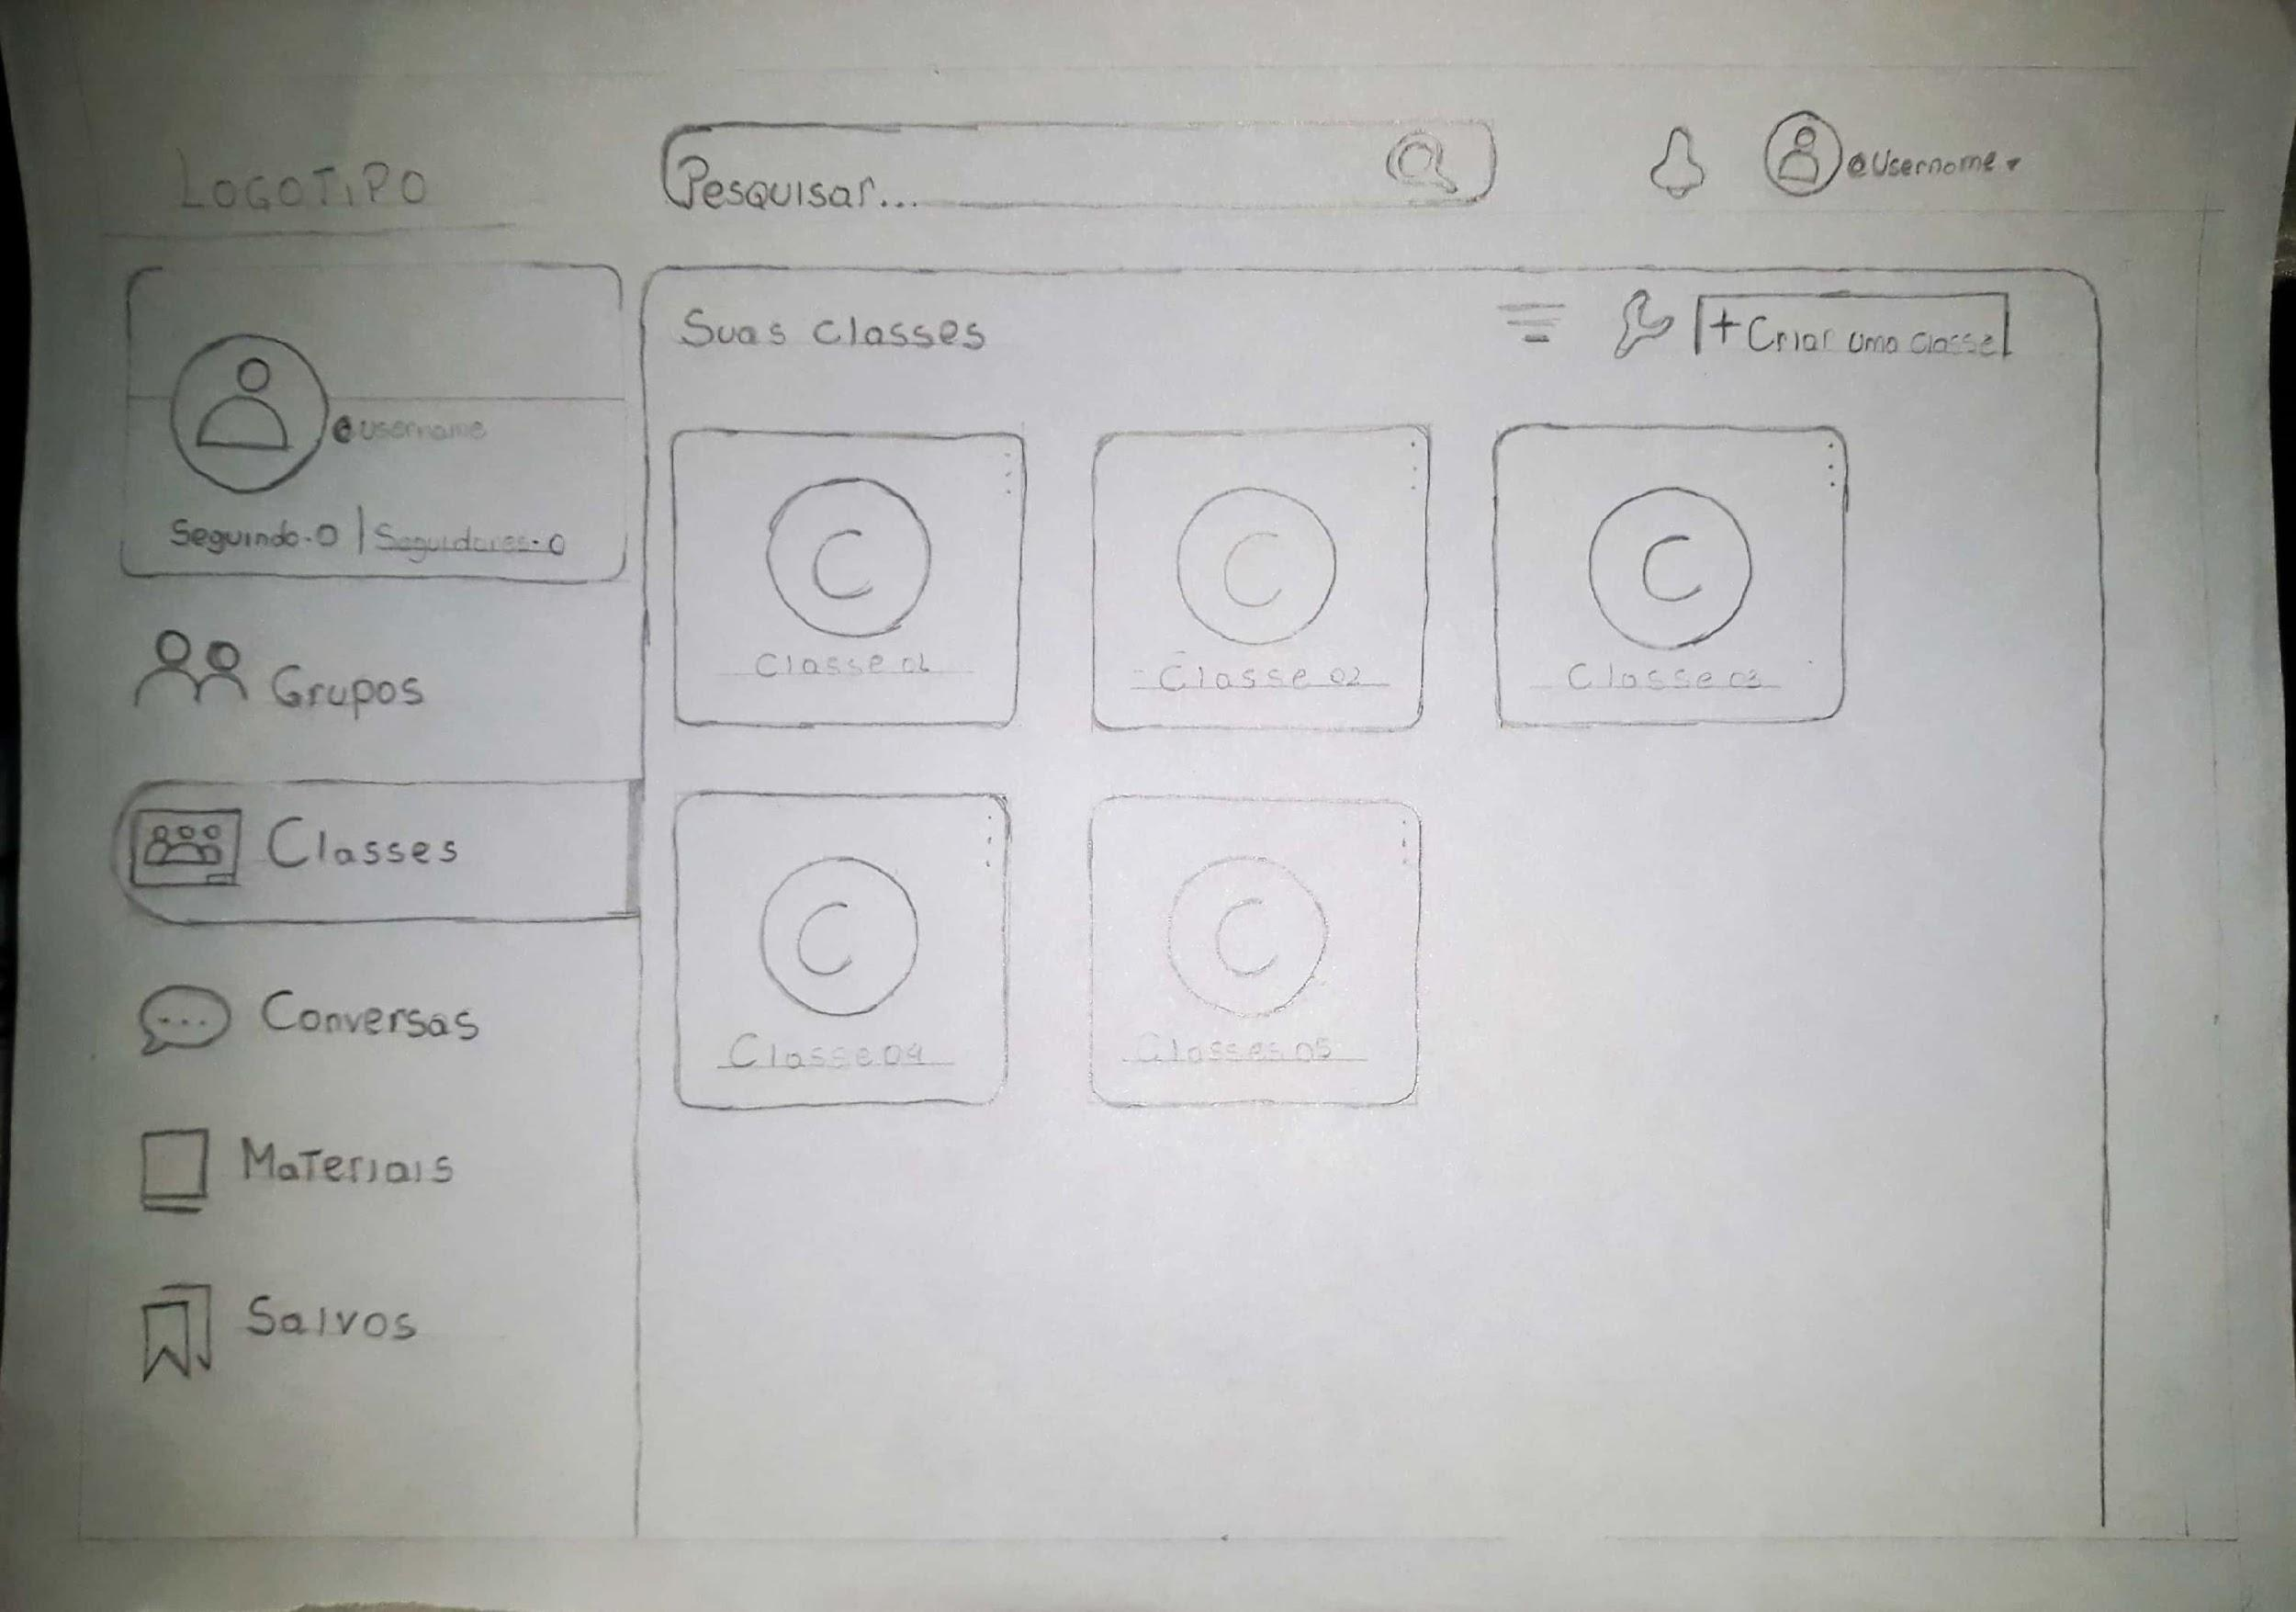 LOGOTIPO
Pesquisar...
@Username
@username
Seguindo·0 | Seguidores·0
Grupos
Classes
Conversas
Materiais
Salvos
Suas classes
+Criar uma classe
C
Classe 01
C
Classe 02
C
Classe 03
C
Classe 04
C
Classes 05